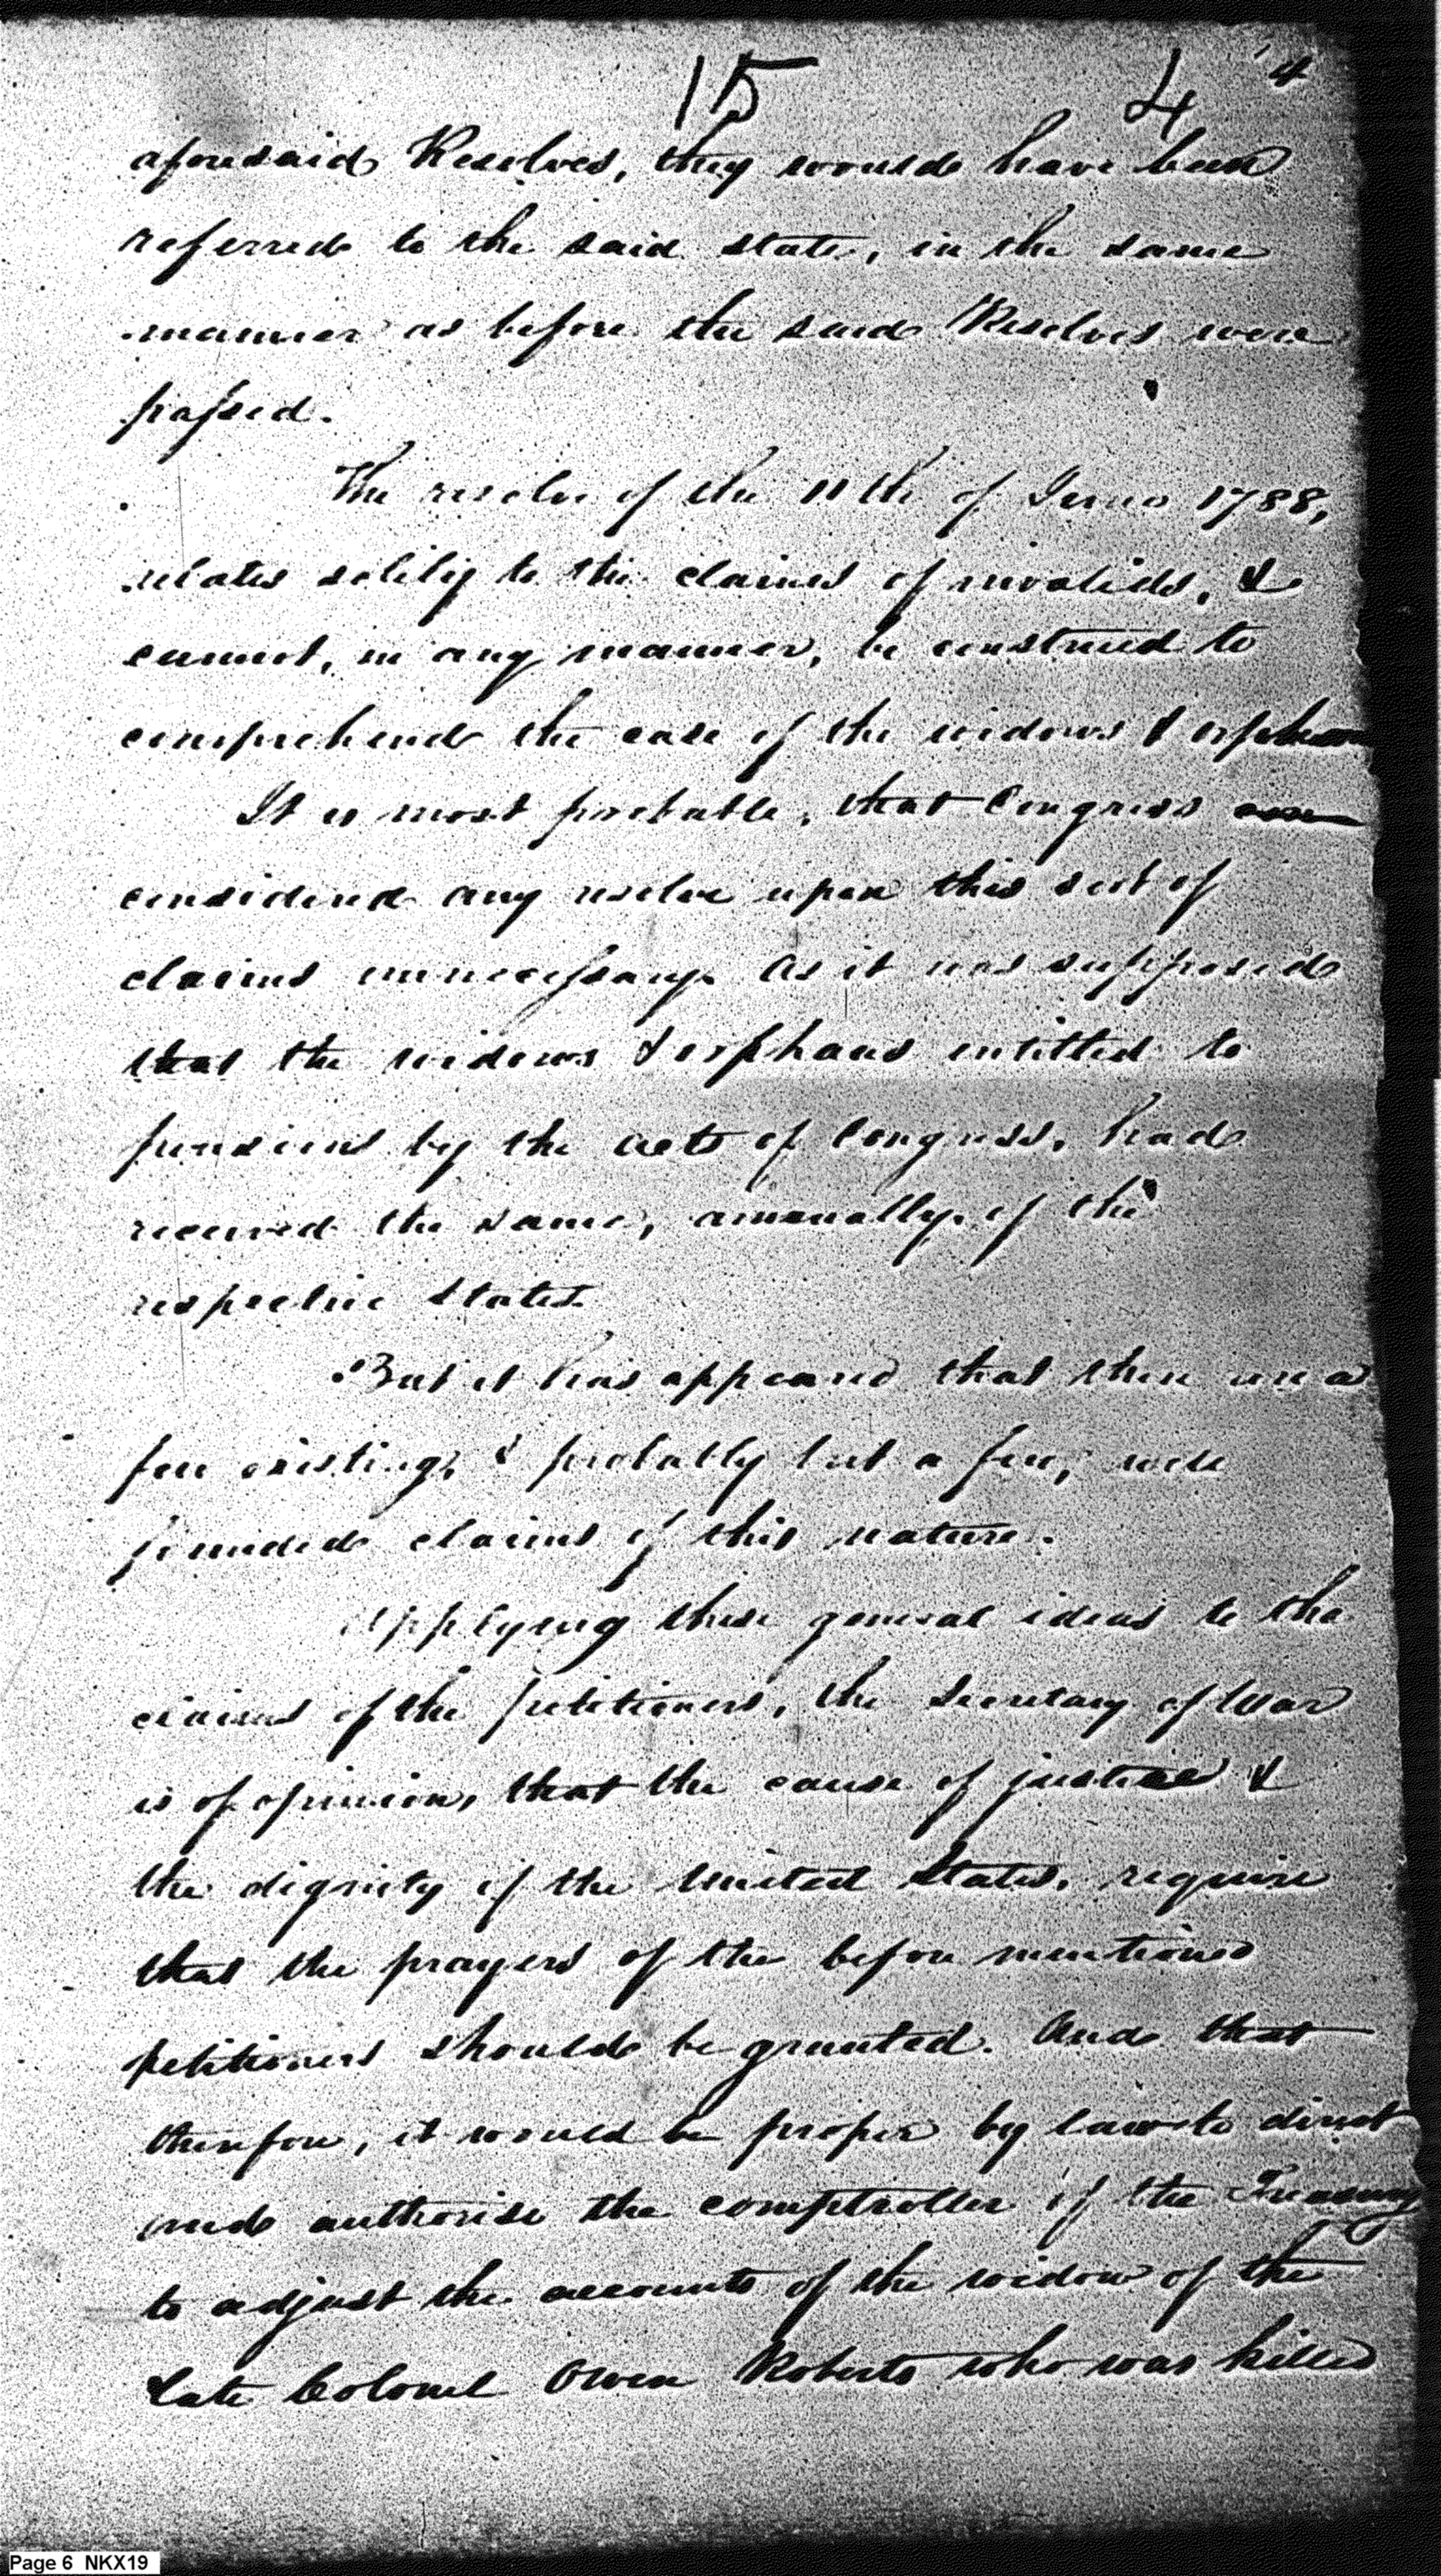 15 4 4
aforesaid Resolves, they would have been
referred to the said state, in the same
manner as before the said Resolves were
passed.
The resolve of the 11th of June 1788,
relates solely to the claims of invalids, &
cannot, in any manner, be construed to
comprehend the case of the widows & orphans
It is most probable, that Congress
considered any resolve upon this sort of
claims unnecessary. As it was supposed
that the widows & orphans intitled to
pensions by the acts of Congress, had
received the same, annually, of the
respective States.
But it has appeared that there are a
few existing, & probably but a few, well
founded claims of this nature.
Applying these general ideas to the
claims of the petitioners, the Secretary of War
is of opinion, that the cause of justice &
the dignity of the United States, require
that the prayers of the before mentioned
petitioners should be granted. And that
therefore, it would be proper by law to direct
and authorise the comptroller of the Treasury
to adjust the accounts of the widow of the
Late Colonel Owen Roberts who was killed
Page 6 NKX19